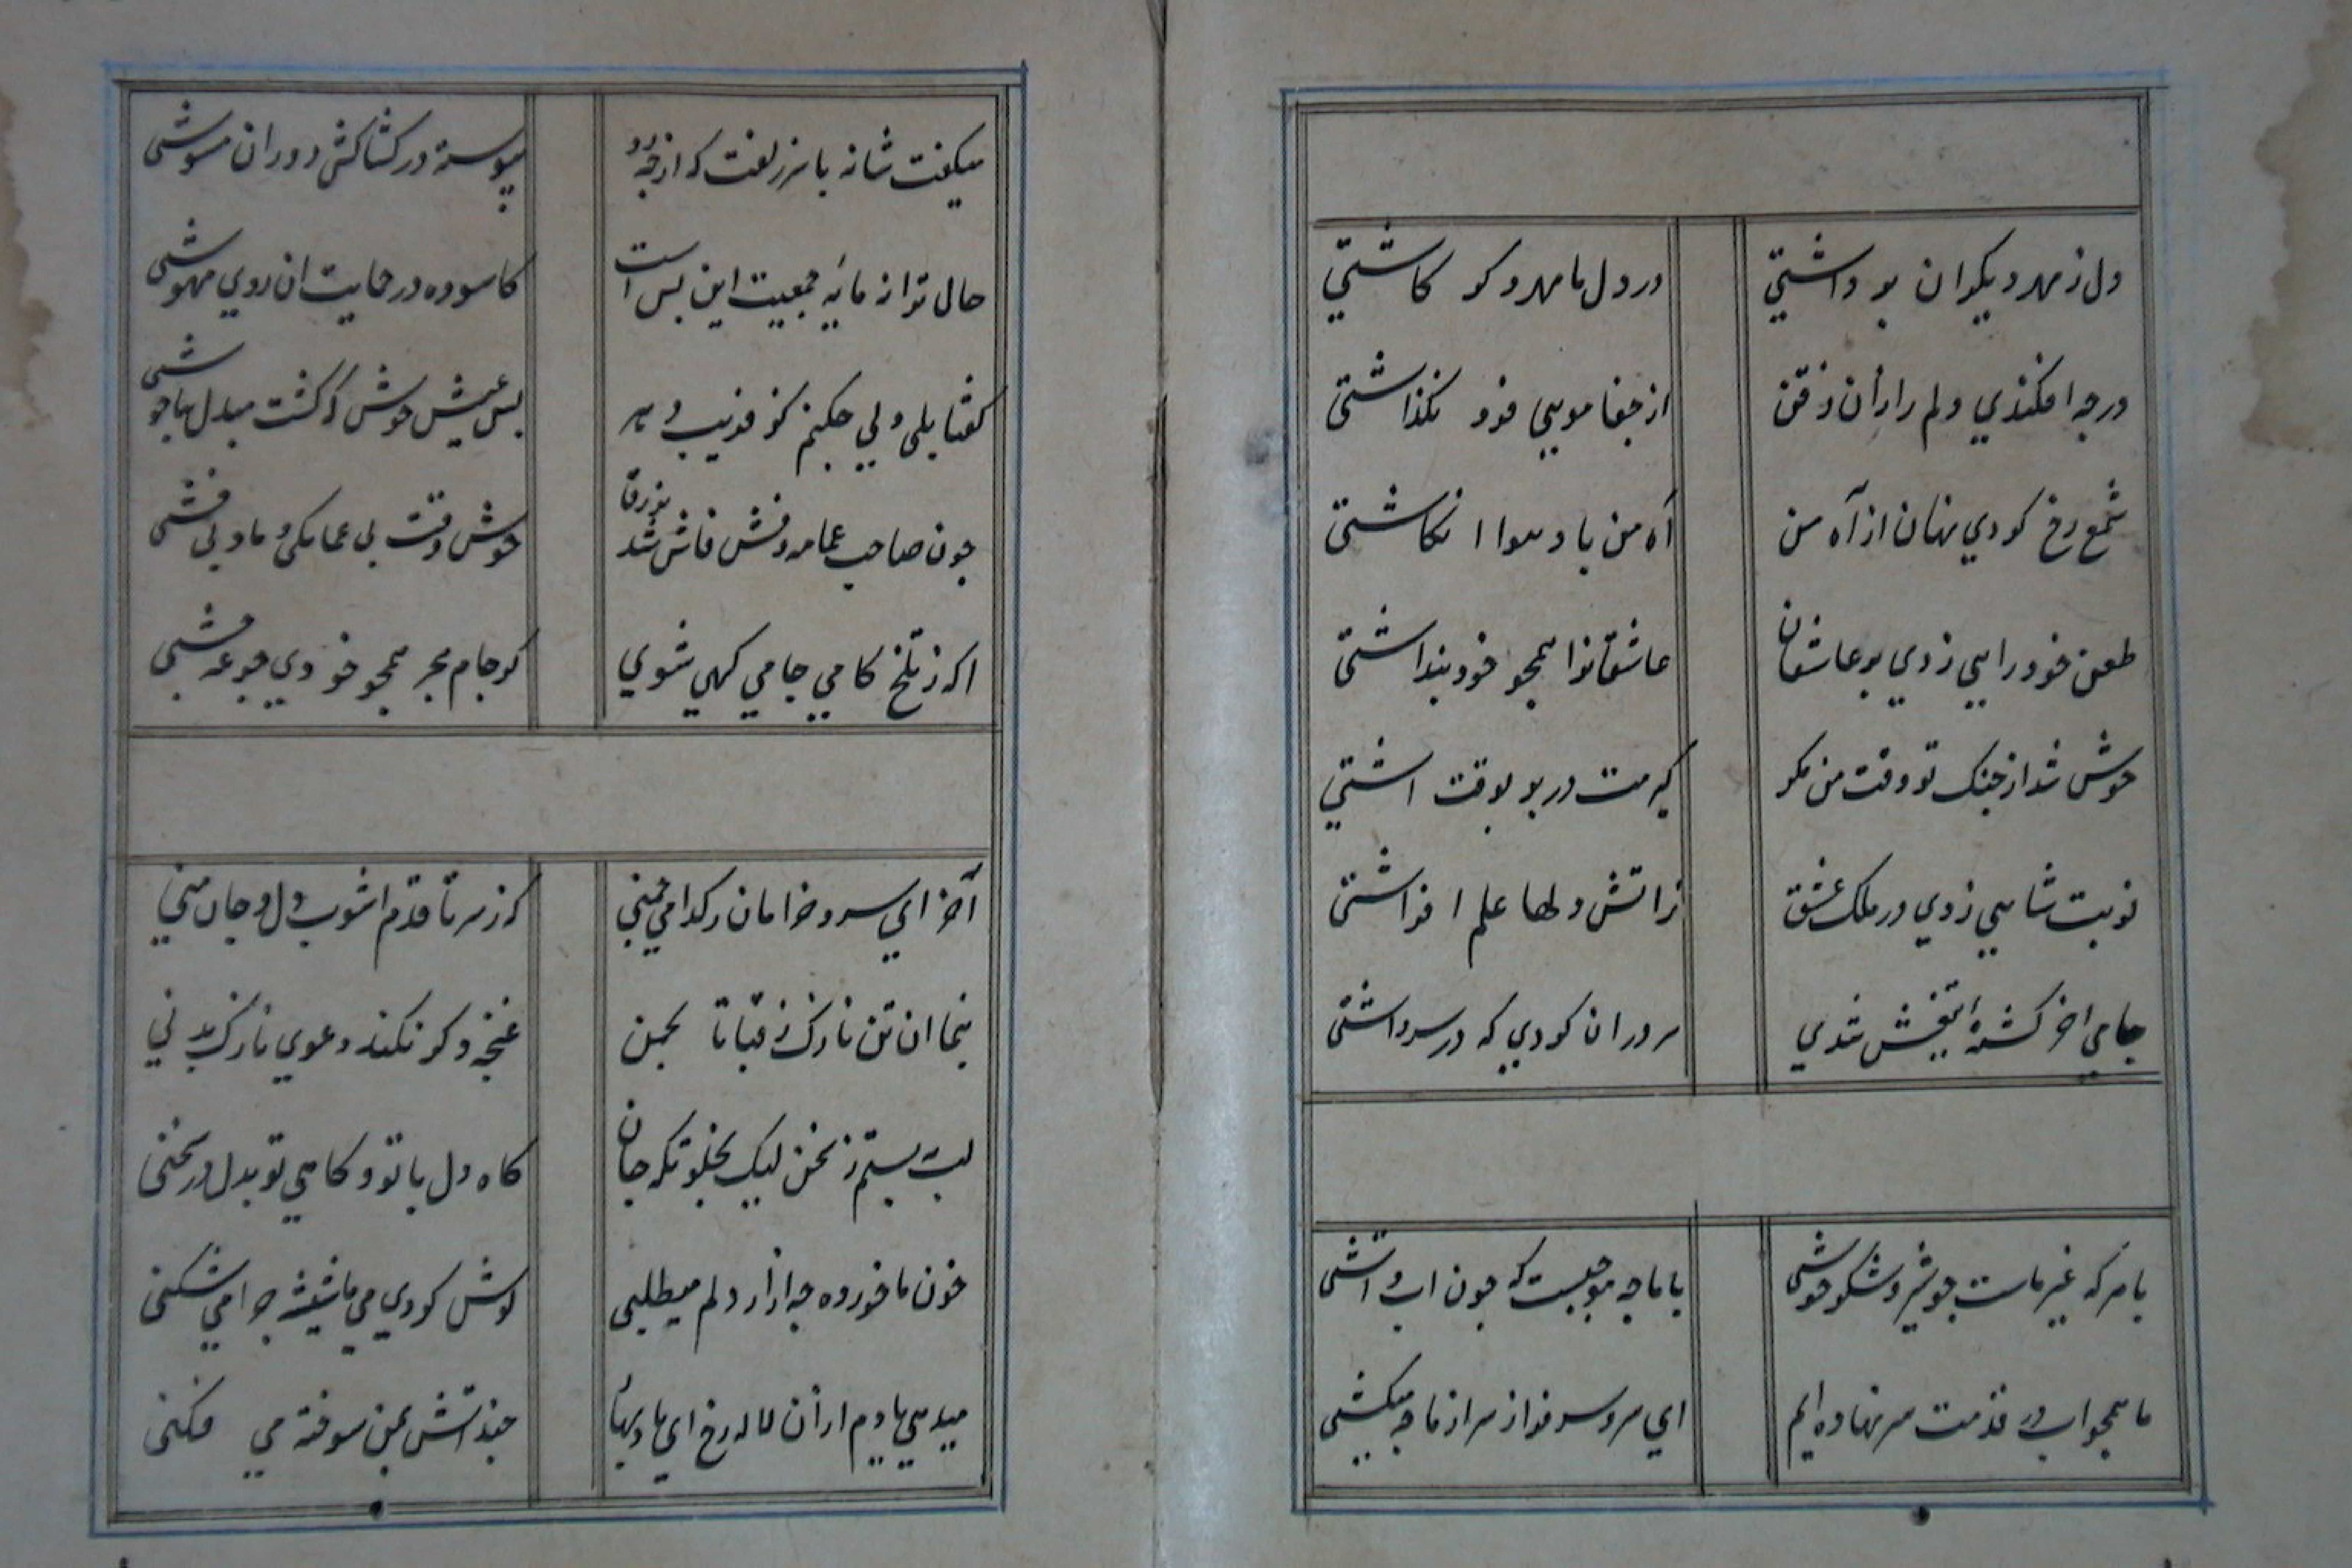 دل ز مهر دیکران بر داشتي در دل ما مهر دکر کاشتي
در چه افکندي دلم را زان ذقن از جفا مویي فرو نکذاشتي
شمع رخ کردي نهان از آه من آه من باد هوا انکاشتي
طعن خود رایي زدي بر عاشقان عاشقانرا همچو خود پنداشتي
خوش شد از جنک تو وقت من مکر در بر بوقت اشتي
نوبت شاهي زدي در ملک عشق ز اتش دلها علم افراشتي
جامي اخر کشتهٔ تیغش شدي سر دران کردي که در سر داشتي
با هر که غیر ماست چو شیر و شکر خوشي با ما چه موجبست که چون اب و اتشي
ما همچو اب در قدمت سر نهاده ایم اي سرو سرفراز سر از ما چه میکشي
میکفت شانه با سر زلفت که از چه رو پیوسته در کشاکش دوران مشوشي
حال ترا نه مایهٔ جمعیت این بس است کاسوده در حمایت ان روي مهوشي
کفتا بلي ولي چکنم کز فریب دهر بس عیش خوش که کشت مبدل بناخوشي
چون صاحب عمامه و فش فاش شد بزرق خوش وقت بي عمامکي و ما و بي فشي
اکر ز تلخ کامي جامي کهي شوي کز جام هجر همچو خودي جرعه مي چشي
آخر اي سرو خرامان ز کدامي چمني که ز سر تا قدم اشوب دل و جان مني
بنما ان تن نازک ز قبا تا بچمن غنچه دکر نکند دعوي نازک بدني
لب ببستم ز سخن لیک بخلوتکه جان کاه دل با تو و کاهي تو بدل در سخني
خون ما خورده چه ازار دلم میطلبي نوش کردي مي ما شیشه چرا مي شکني
میدهي یادم از ان لاله رخ اي باد بهار چند اتش بمن سوخته مي فکني